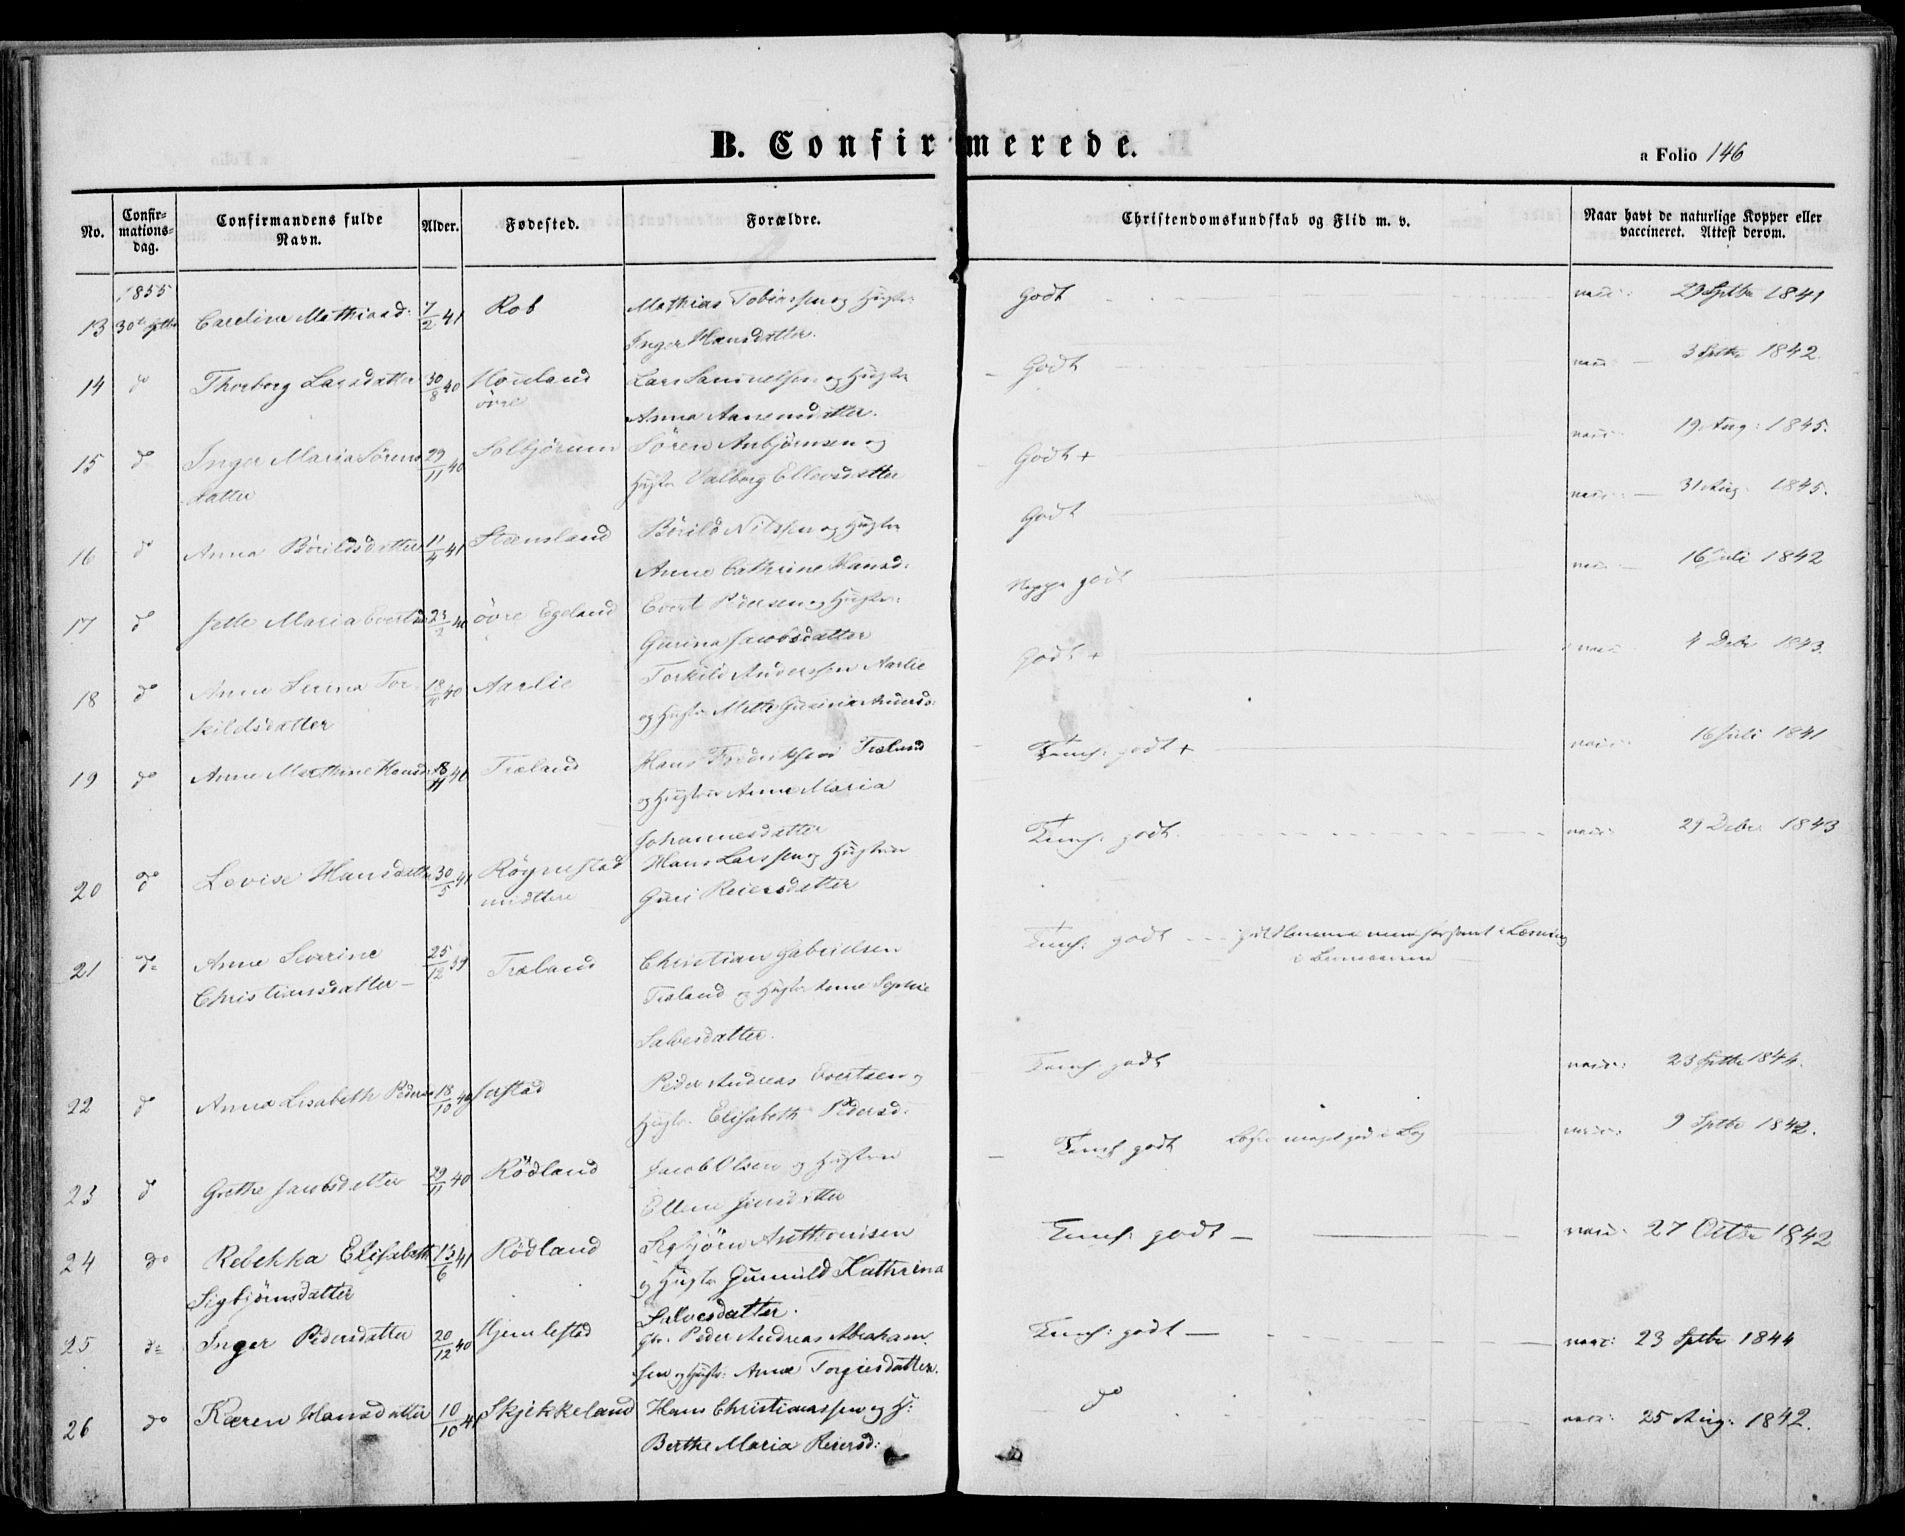 B. Confirmerede.
a Folio 146
No.
Confir-
mations-
dag.
Confirmandens fulde
Navn.
Alder.
Fødested.
Forældre.
Christendomskundskab og Flid m. v.
Naar havt de naturlige Kopper eller
vaccineret. Attest derom.
1855
13 30te Septbr Caroline Mathiasd: 7/2 41 Rob Mathias Tobiassen og Hustr:
Inger Hansdatter.
Godt vacc: 29 Septbr 1841
14 do Thorborg Larsdatter 30/8 40 Houland
øvre
Lars Samuelsen og Hustr
Anna Aanensdatter.
Godt vacc 3 Septbr 1842.
15 do Inger Maria Sørens
datter
29/11 40 Solbjørum Søren Anbjørnsen og
Hustr Valborg Ellevsdatter
Godt + vacc: 19 Aug: 1845.
16 do Anna Børildsdatter 11/4 41 Stensland Børild Nilsen og Hustr
Anne Cathrine Hansd:
Godt vacc: 31 Aug: 1845.
17 do Maria 23/2 øvre Egeland Evert Pedersen og Hustr:
Gurina Jacobsdatter
Neppe godt vacc: 16 Juli 1842
18 do Anne Serina Tor-
kildsdatter
40 Aarlie Torkild Anderssen Aarlie
og Hustr Mette Gurina Andersd:
Godt + vacc 4 Debr 1843.
19 do Anne Marthine Hansd: 18/11 Træland Hans Fredriksen Træland
og Hustrue Anne Maria
Johannesdatter
Tems: godt + vacc: 16 Juli 1841
20 do Lovise Hansdatter 30/5 41 Røynestad
midttre
Hans Larssen og Hustrue
Guri Reiersdatter
Tems: godt. vacc: 29 Debr 1843
21 do Anne Severine
Christiansdatter
25/12 39 Træland Christian Gabrielsen
Træland og Hustr Anne Sophie
Salvesdatter.
Tems: godt
22 do Anna Lisabeth Peders 18/10 40 Jerstad Peder Andreas Evertsen og
Hustr. Elisabeth Pedersd:
Tems godt vacc: 23 Septbr 1844.
23 do Grethe Jacobsdatter 29/11 40 Rödland Jacob Olsen og Hustrue
Ellene Jensdatter
Tems godt meget god i Bog vacc: 9 Septbr 1842.
24 do Rebekka Elisabeth
Sigbjörnsdatter
13/6 41 Rödland Sigbjörn Anthonisen
og Hustr Gunnild Kathrina
Salvesdatter.
Tems: godt vacc: 27 Octbr 1842
25 do Inger Pedersdatter 20/12 40 Hjemlestad Gbr. Peder Andreas Abraham-
sen og Hustr: Anna Torgiesdatter.
Tems: godt vacc: 23 Septbr 1844
26 do Karen Hansdatter 10/10 41 Skjekkeland Hans Christianssen og H:
Berthe Maria Reiersd:
do vacc: 25 Aug: 1842.